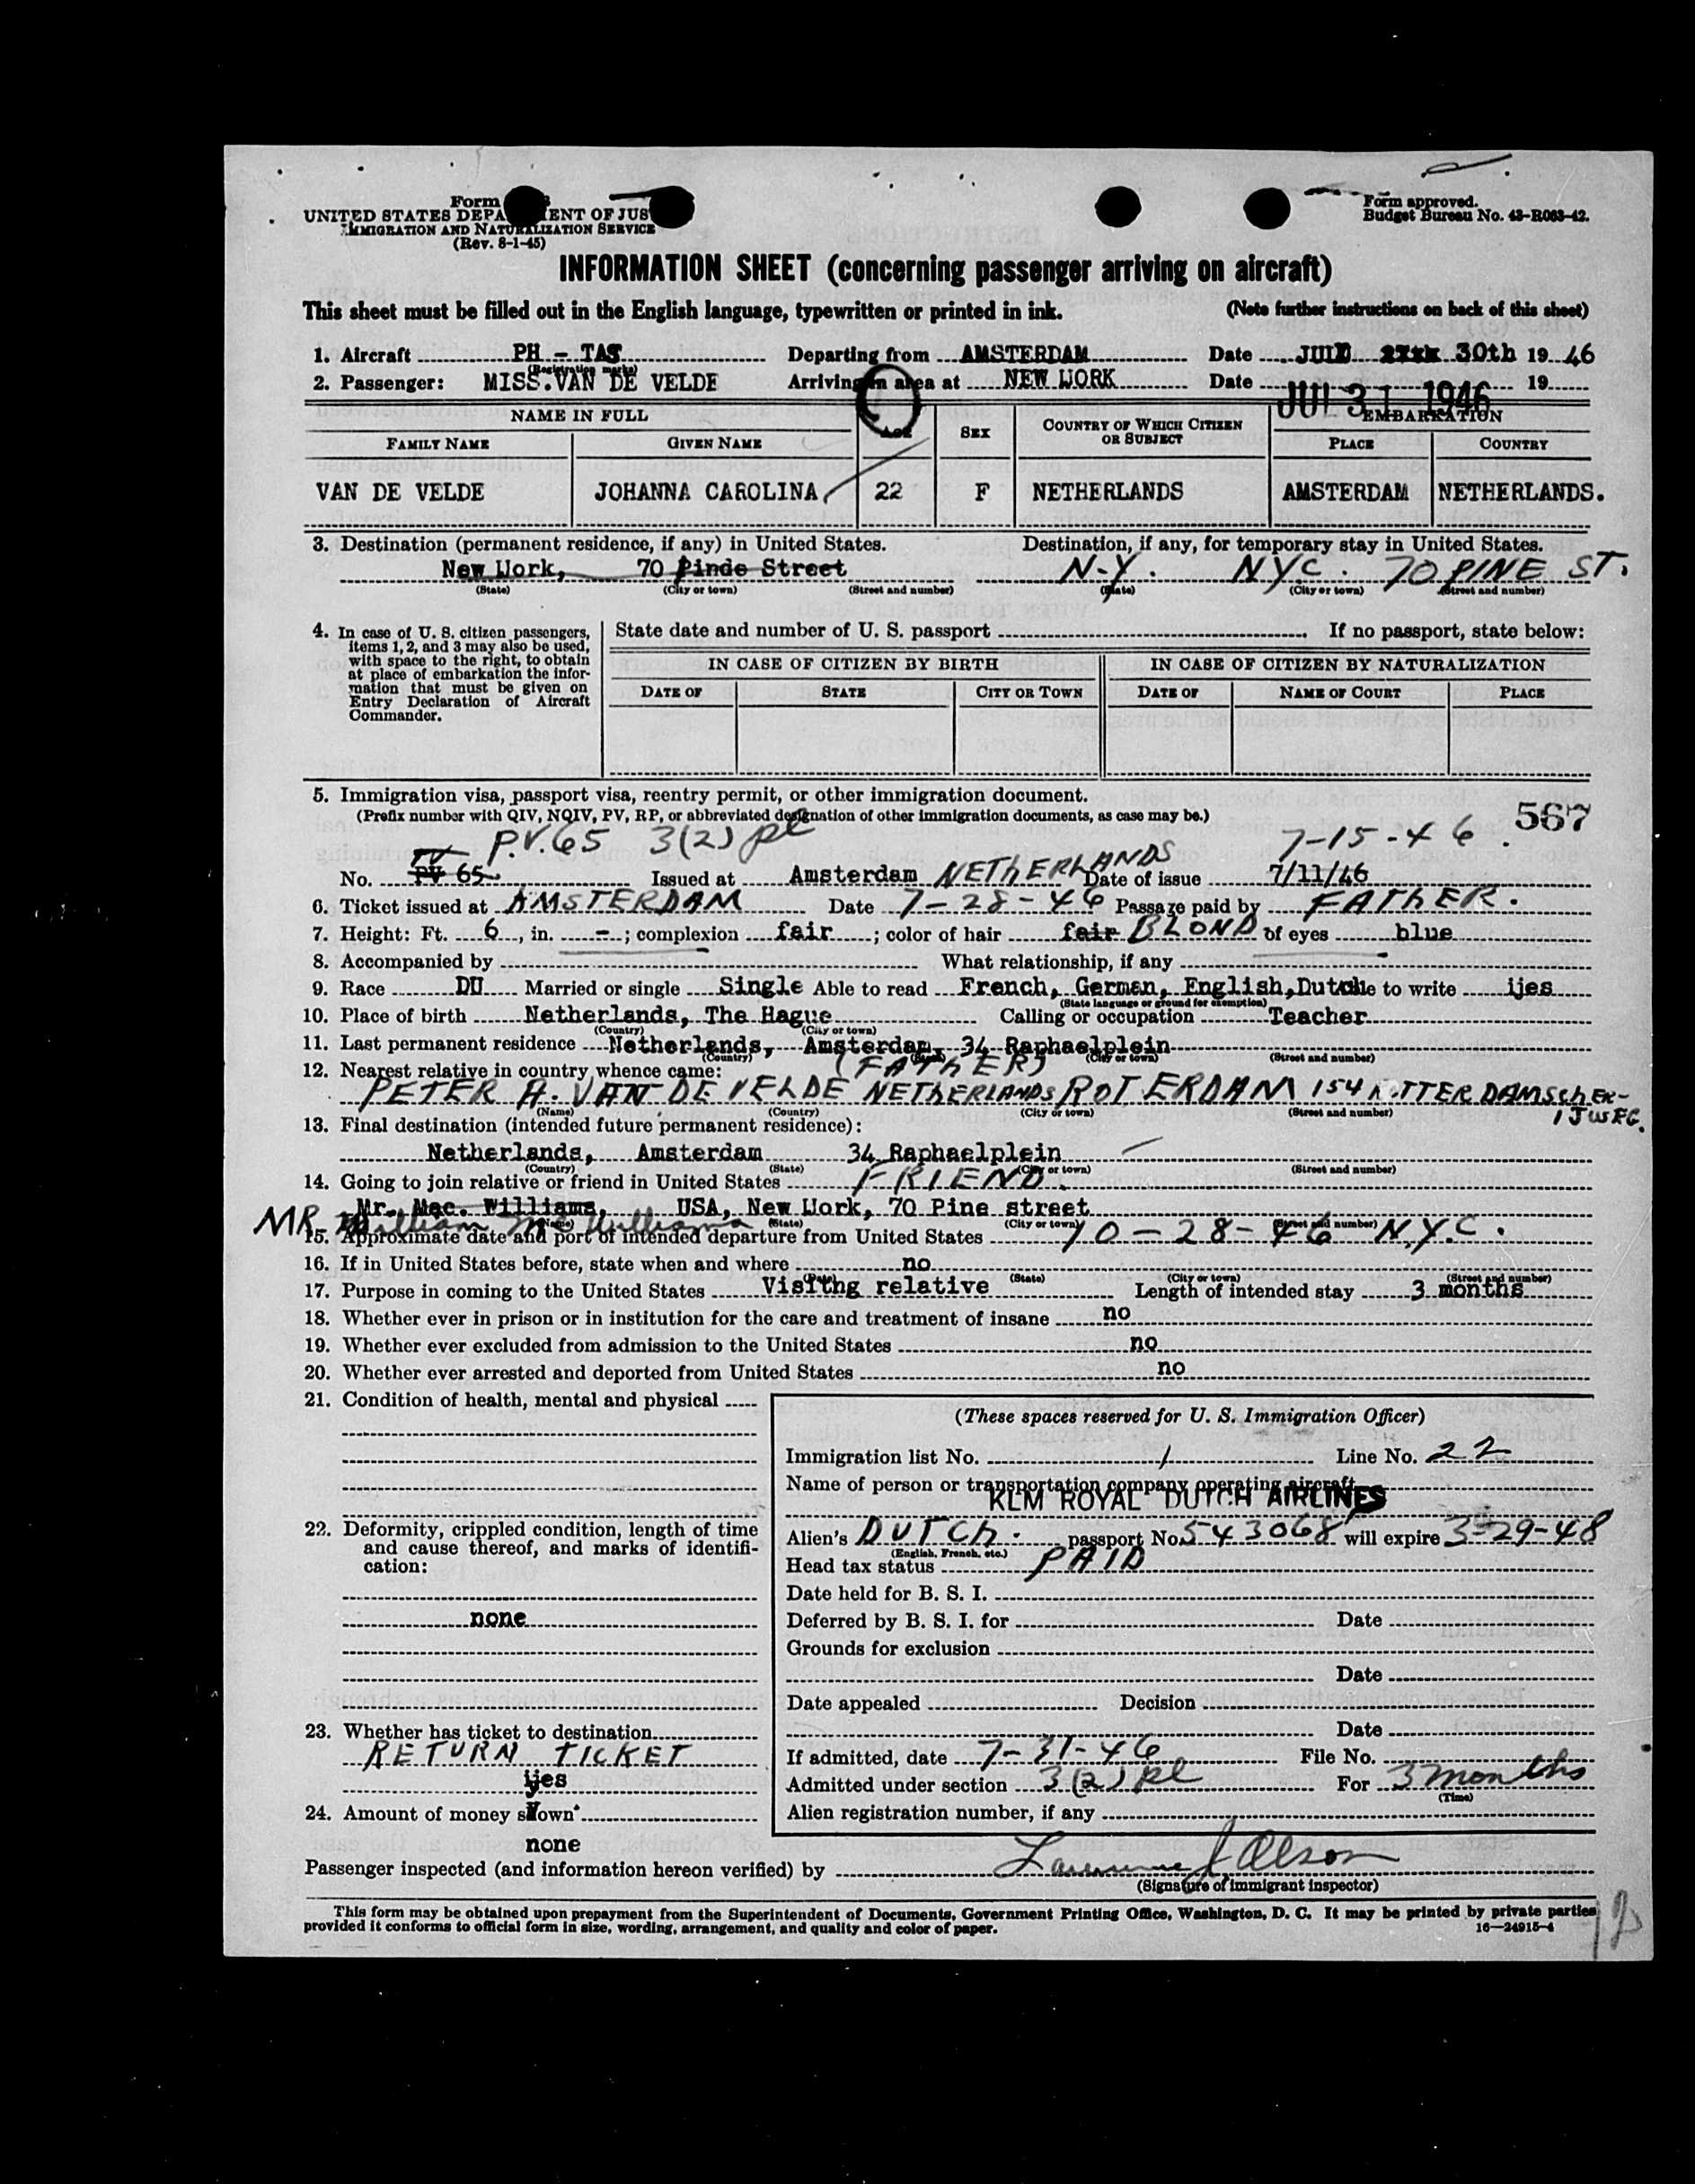 Form
UNITED STATES DEPA ENT OF JUS
IMMIGRATION AND NATURALIZATION SERVICE
(Rev. 8-1-45)
Form approved.
Budget Bureau No. 43-R063-42.
INFORMATION SHEET (concerning passenger arriving on aircraft)
This sheet must be filled out in the English language, typewritten or printed in ink. (Note further instructions on back of this sheet)
1. Aircraft PH - TAS Departing from AMSTERDAM Date 30th 19 46
(Registration marks)
2. Passenger: MISS.VAN DE VELDE Arriving in area at NEW IJORK Date JUL 31 1946 19
NAME IN FULL AGE SEX COUNTRY OF WHICH CITIZEN OR SUBJECT EMBARKATION
FAMILY NAME GIVEN NAME PLACE COUNTRY
VAN DE VELDE JOHANNA CAROLINA 22 F NETHERLANDS AMSTERDAM NETHERLANDS.
3. Destination (permanent residence, if any) in United States. Destination, if any, for temporary stay in United States.
New IJork, 70 Pinde Street N.Y. NYC. 70 PINE ST.
(State) (City or town) (Street and number) (State) (City or town) (Street and number)
4. In case of U. S. citizen passengers,
items 1, 2, and 3 may also be used,
with space to the right, to obtain
at place of embarkation the infor-
mation that must be given on
Entry Declaration of Aircraft
Commander.
State date and number of U. S. passport If no passport, state below:
IN CASE OF CITIZEN BY BIRTH IN CASE OF CITIZEN BY NATURALIZATION
DATE OF STATE CITY OR TOWN DATE OF NAME OF COURT PLACE
5. Immigration visa, passport visa, reentry permit, or other immigration document.
(Prefix number with QIV, NQIV, PV, RP, or abbreviated designation of other immigration documents, as case may be.) 567
P.V.65 3(2) pl 7-15-46.
No. PV 65 Issued at Amsterdam NETHERLANDS Date of issue 7/11/46
6. Ticket issued at AMSTERDAM Date 7-28-46 Passage paid by FATHER.
7. Height: Ft. 6, in. -; complexion fair; color of hair fair BLOND of eyes blue
8. Accompanied by What relationship, if any -
9. Race DU Married or single Single Able to read French, German, English, Dutch Able to write ijes
(State language or ground for exemption)
10. Place of birth Netherlands, The Hague Calling or occupation Teacher
(Country) (City or town)
11. Last permanent residence Netherlands, Amsterdam, 34 Raphaelplein
(Country) (State) (City or town) (Street and number)
12. Nearest relative in country whence came: (FATHER)
PETER A. VAN DE VELDE NETHERLANDS ROTERDAM 154 ROTTERDAMSCHER-
IJWEG.
(Name) (Country) (City or town) (Street and number)
13. Final destination (intended future permanent residence):
Netherlands, Amsterdam 34 Raphaelplein
(Country) (State) (City or town) (Street and number)
14. Going to join relative or friend in United States FRIEND.
Mr. Mac. Williams, USA, New IJork, 70 Pine street
(Name) (State) (City or town) (Street and number)
MR. William Mc Williams
15. Approximate date and port of intended departure from United States 10-28-46 N.Y.C.
16. If in United States before, state when and where no
(Date) (State) (City or town) (Street and number)
17. Purpose in coming to the United States Visitng relative Length of intended stay 3 months
18. Whether ever in prison or in institution for the care and treatment of insane no
19. Whether ever excluded from admission to the United States no
20. Whether ever arrested and deported from United States no
21. Condition of health, mental and physical
22. Deformity, crippled condition, length of time
and cause thereof, and marks of identifi-
cation:
none
23. Whether has ticket to destination
RETURN TICKET
ijes
24. Amount of money shown
none
(These spaces reserved for U. S. Immigration Officer)
Immigration list No. 1 Line No. 22
Name of person or transportation company operating aircraft
KLM ROYAL DUTCH AIRLINES
Alien's DUTCH. passport No. 543068 will expire 3-29-48
(English, French, etc.)
Head tax status PAID
Date held for B. S. I.
Deferred by B. S. I. for Date
Grounds for exclusion
Date
Date appealed Decision
Date
If admitted, date 7-31-46 File No.
Admitted under section 3(2) pl For 3 months
(Time)
Alien registration number, if any
Passenger inspected (and information hereon verified) by Lawrence J Olson
(Signature of immigrant inspector)
This form may be obtained upon prepayment from the Superintendent of Documents, Government Printing Office, Washington, D. C. It may be printed by private parties
provided it conforms to official form in size, wording, arrangement, and quality and color of paper. 16—24915-4